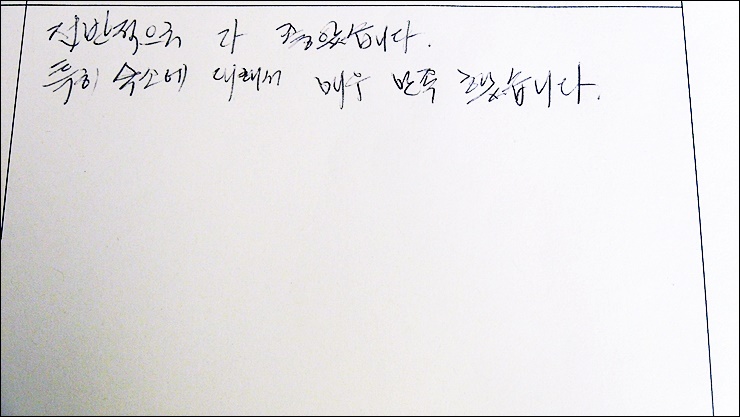 전반적으로 다 좋았습니다.
특히 숙소에 대해서 매우 만족 했습니다.